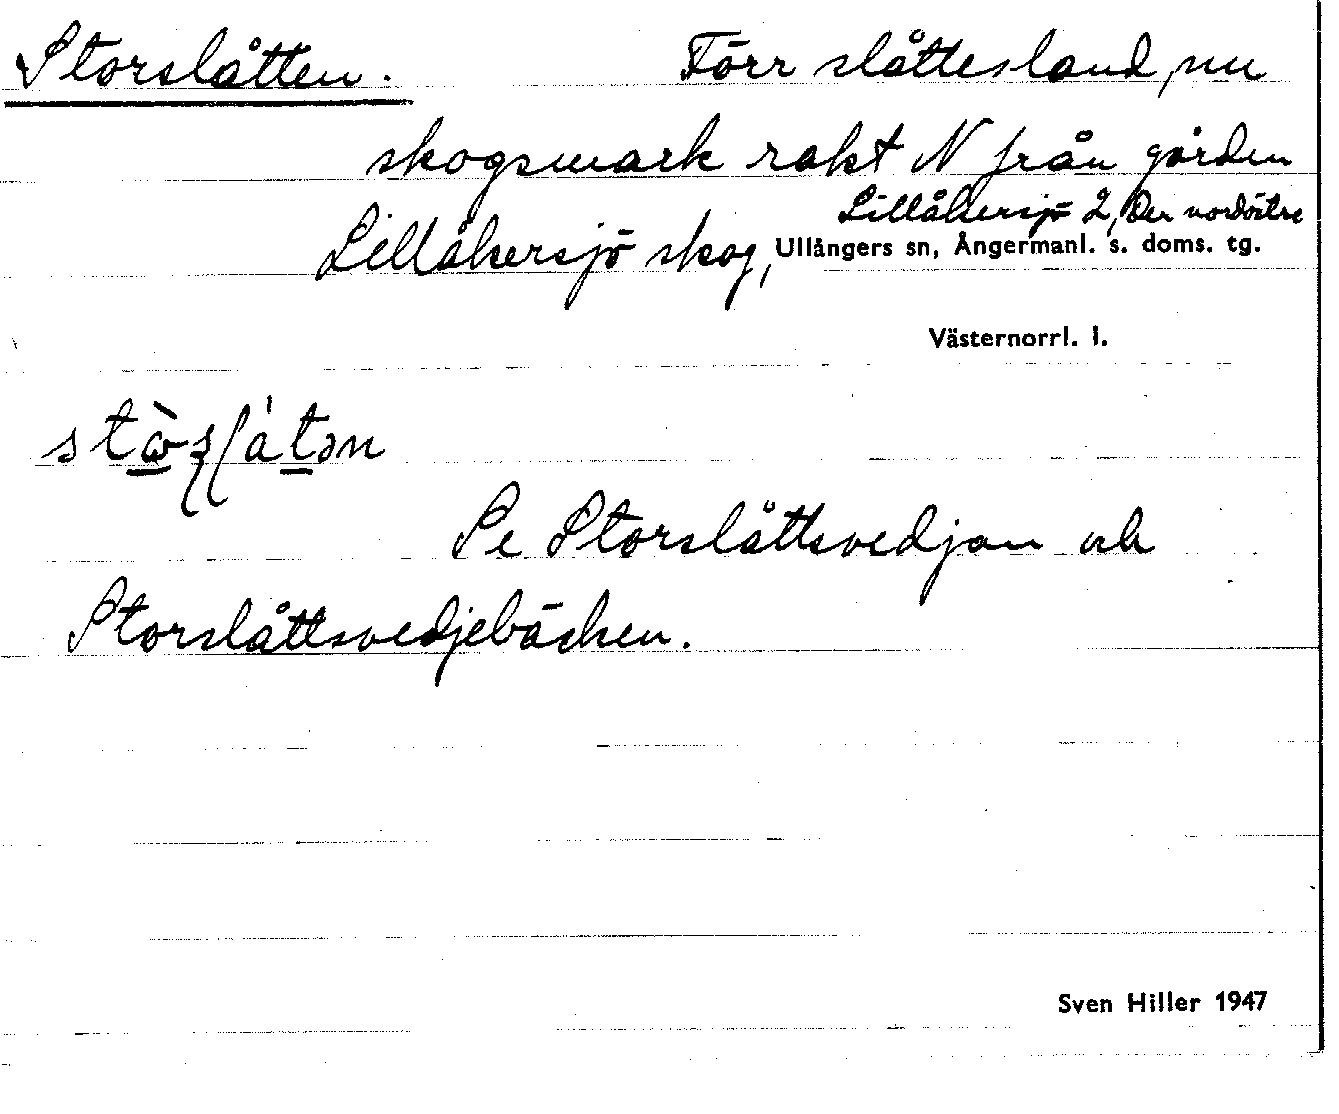 Storslåtten. Förr slåttesland, nu
skogsmark rakt N från gården
Lillåkersjö 2, Den nordöstre
Lillåkersjö skog, Ullångers sn, Ångermanl. s. doms. tg.
Västernorrl. l.
Se Storslåttsvedjan och
Storslåttsvedjebäcken.
Sven Hiller 1947